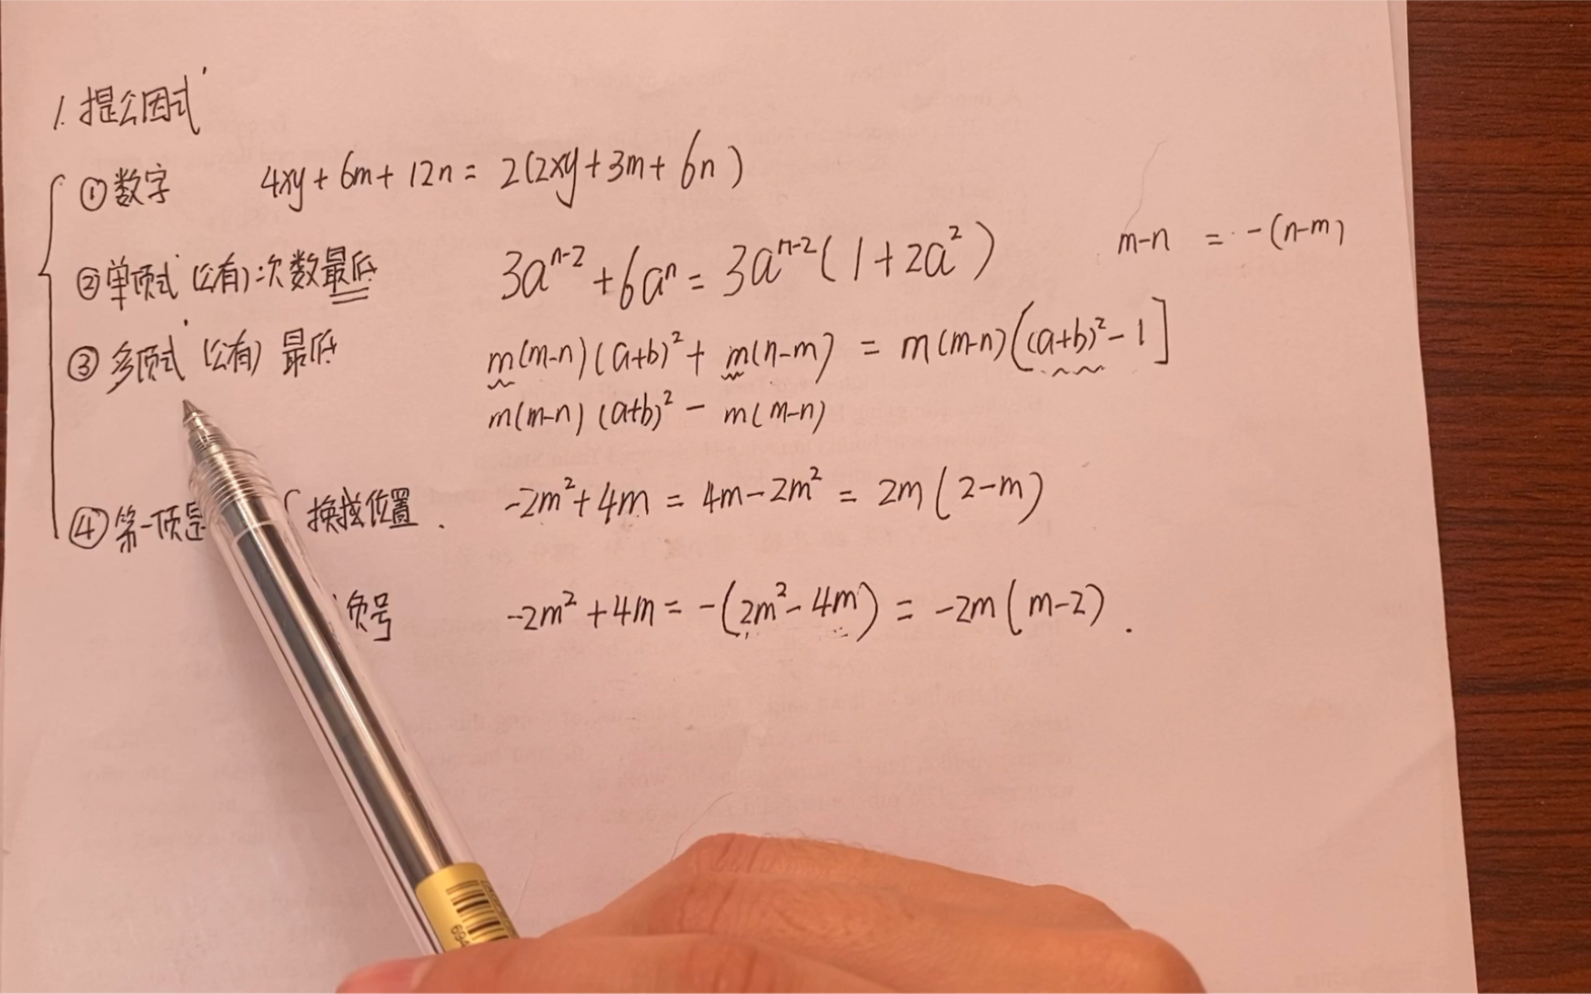 1. 提公因式
① 数字 4xy+6m+12n=2(2xy+3m+6n)
② 单项式(公有)次数最低 3aⁿ⁻²+6aⁿ=3aⁿ⁻²(1+2a²) m-n = -(n-m)
③ 多项式(公有)最低 m(m-n)(a+b)²+m(n-m) = m(m-n)[(a+b)²-1]
m(m-n)(a+b)²-m(m-n)
④ 第一项是 换找位置. -2m²+4m=4m-2m²=2m(2-m)
负号 -2m²+4m=-(2m²-4m)=-2m(m-2).